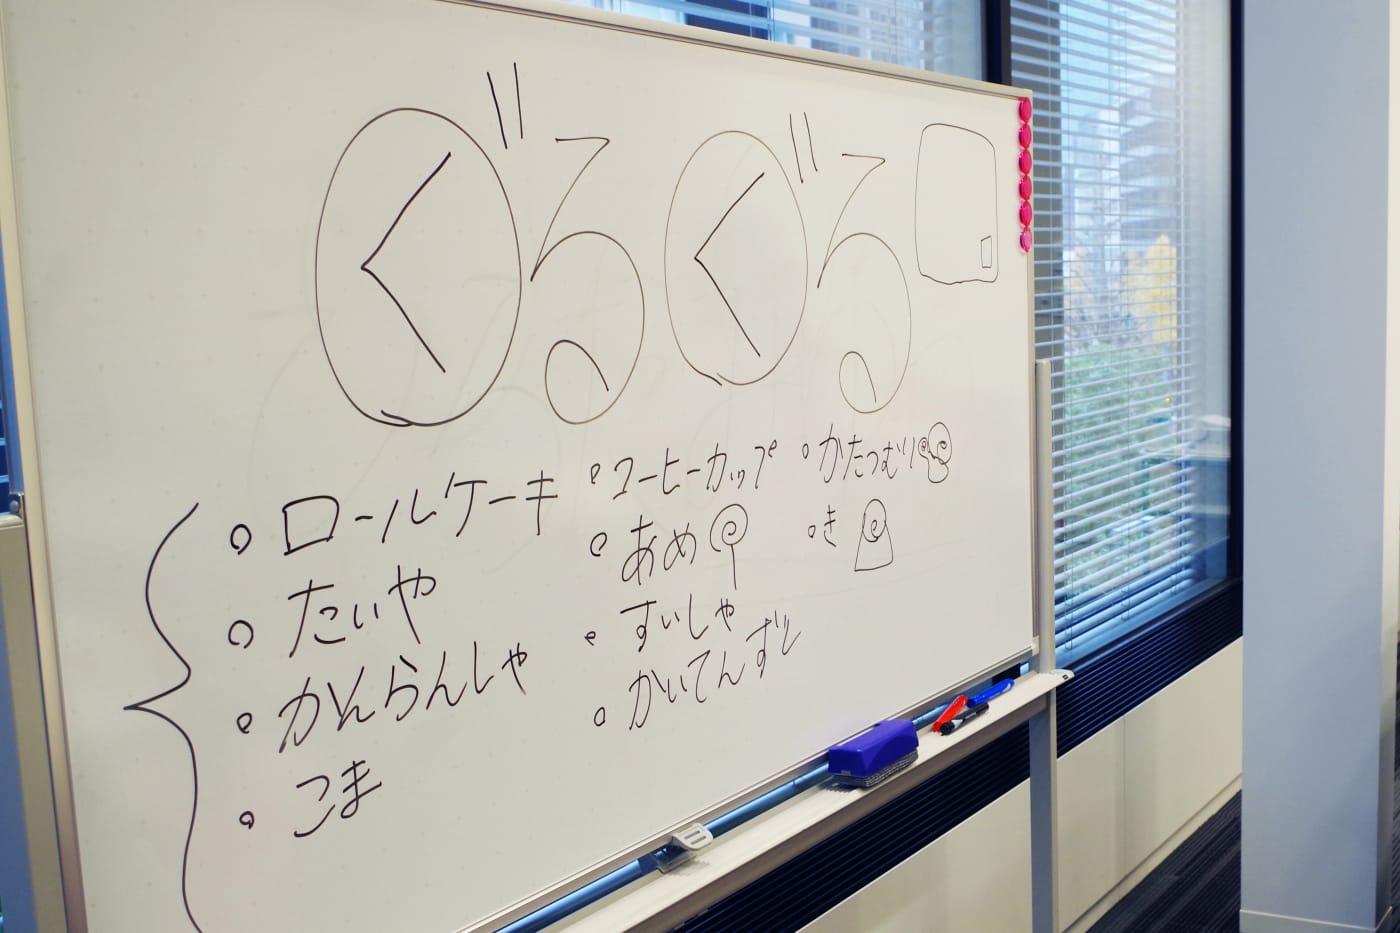 ぐるぐる
ロールケーキ
たいや
かんらんしゃ
こま
コーヒーカップ
あめ
すいしゃ
かいてんずし
かたつむり
き